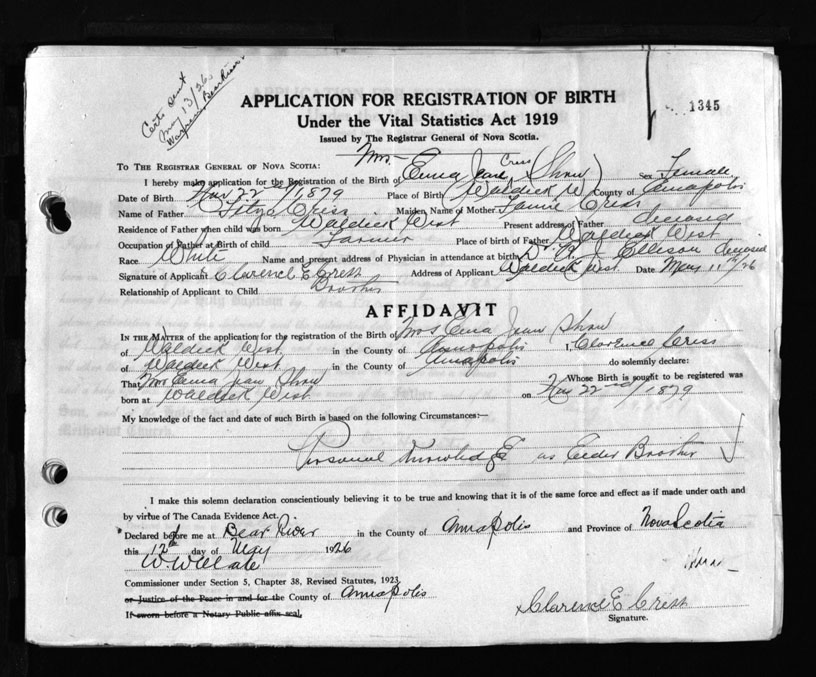 Certs sent
May 13/26
APPLICATION FOR REGISTRATION OF BIRTH
1345
Under the Vital Statistics Act 1919
Issued by The Registrar General of Nova Scotia.
TO THE REGISTRAR GENERAL OF NOVA SCOTIA:
I hereby make application for the Registration of Birth of Mrs. Ema Jean Criss (Shaw) Sex Female
Date of Birth 22nd/1879 Place of Birth Waldick W County of Annapolis
Name of Father Criss Maiden Name of Mother Criss
Residence of Father when child was born Waldick West Present address of Father
Occupation of Father at Birth of child Farmer Place of Birth of Father Waldick West
Race White Name and present address of Physician in attendance at birth Ellison
Signature of Applicant Clarence E Cress Address of Applicant Waldick West. Date May 11th/26
Relationship of Applicant to Child Brother
AFFIDAVIT
IN THE MATTER of the application for the registration of the Birth of Mrs Ema Jean Shaw
of Waldick West, in the County of Annapolis I, Clarence Criss
of Waldick West in the County of Annapolis do solemnly declare:
That Mrs Ema Jean Shaw Whose Birth is sought to be registered was
born at Waldick West on 22nd/1879
My knowledge of the fact and date of such Birth is based on the following Circumstances:—
Personal as Brother
I make this solemn declaration conscientiously believing it to be true and knowing that it is of the same force and effect as if made under oath and
by virtue of The Canada Evidence Act.
Declared before me at Bear River in the County of Annapolis and Province of Nova Scotia
this 12th day of May 1926
Commissioner under Section 5, Chapter 38, Revised Statutes, 1923
or Justice of the Peace in and for the County of Annapolis
If sworn before a Notary Public affix seal.
Clarence E Cress
Signature.